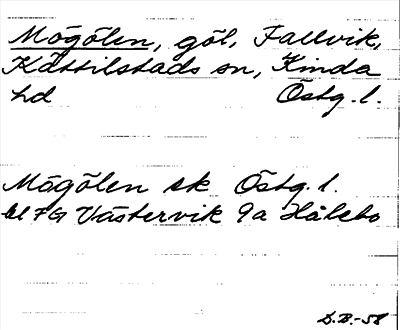 Mögölen, göl, Fallvik,
Kättilstads sn, Kinda
hd Östg. l.
Mögölen sk Östg. l.
bl 7G Västervik 9a Hålebo
D.B.-58